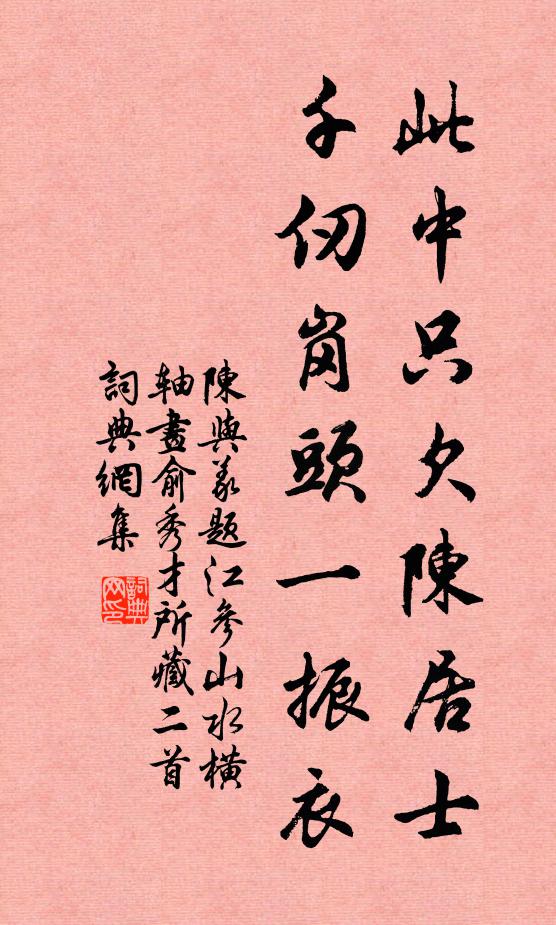 此中只欠陳居士
千仞崗頭一振衣
陳與義題江參山水橫
軸畫俞秀才所藏二首
詞典網集
詞典
网印